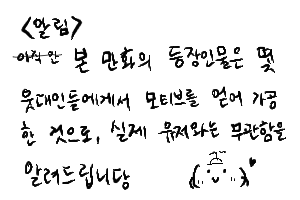 <알림>
아직 안 본 만화의 등장인물은 몇
웃대인들에게서 모티브를 얻어 가공
한 것으로, 실제 유저와는 무관함을
알려드립니당